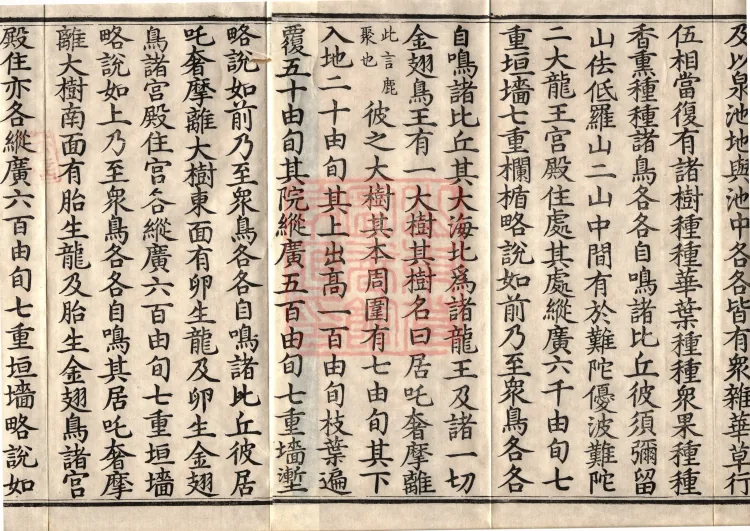 及以泉池地與池中各各皆有衆雜華草行
伍相當復有諸樹種種華葉種種衆果種種
香熏種種諸鳥各各自鳴諸比丘彼須彌留
山佉低羅山二山中間有於難陀優波難陀
二大龍王宮殿住處其處縱廣六千由旬七
重垣墻七重欄楯略說如前乃至衆鳥各各
自鳴諸比丘其大海北爲諸龍王及諸一切
金翅鳥王有一大樹其樹名曰居吒奢摩離
此言鹿
聚也
彼之大樹其本周圍有七由旬其下
入地二十由旬其上出高一百由旬枝葉遍
覆五十由旬其院縱廣五百由旬七重墻塹
略說如前乃至衆鳥各各自鳴諸比丘彼居
吒奢摩離大樹東面有卵生龍及卵生金翅
鳥諸宮殿住宮各縱廣六百由旬七重垣墻
略說如上乃至衆鳥各各自鳴其居吒奢摩
離大樹南面有胎生龍及胎生金翅鳥諸宮
殿住亦各縱廣六百由旬七重垣墻略說如